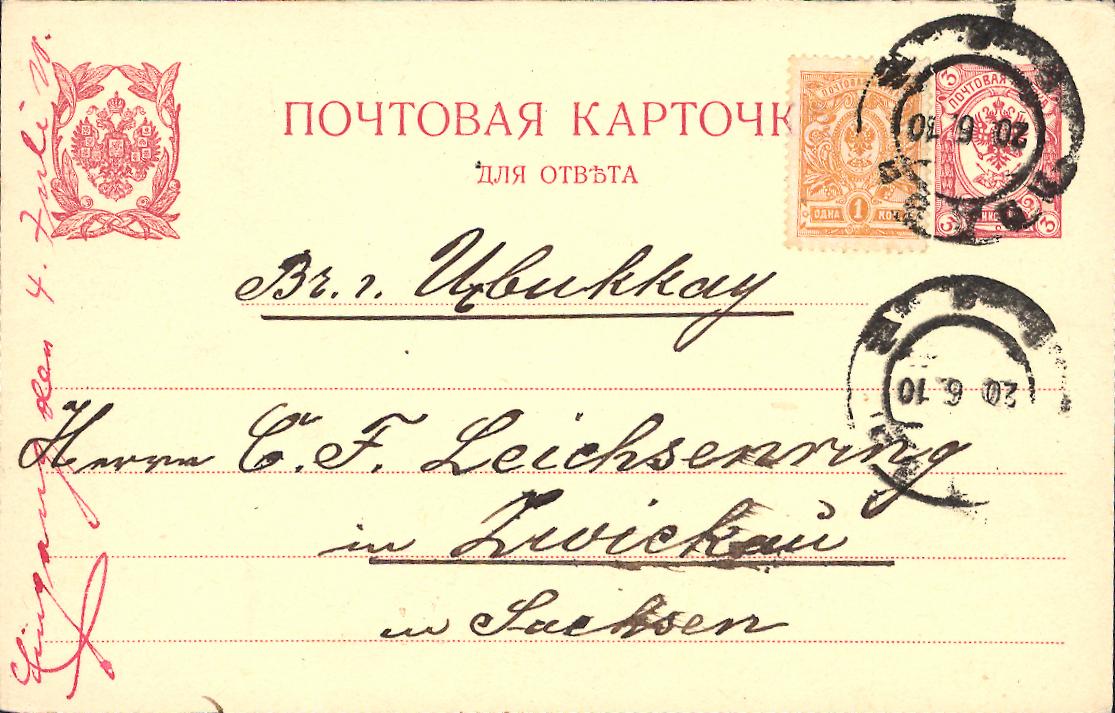 ПОЧТОВАЯ КАРТОЧК
ДЛЯ ОТВѢТА
ПОЧТОВАЯ
ОДНА 1 КОП
3 ПОЧТОВАЯ 3
3 3
20 6 10
Вг. г. Цвиккау
20 6 10
Herrn C. F. Leichsenring
in Zwickau
in Sachsen
den 4. Juli